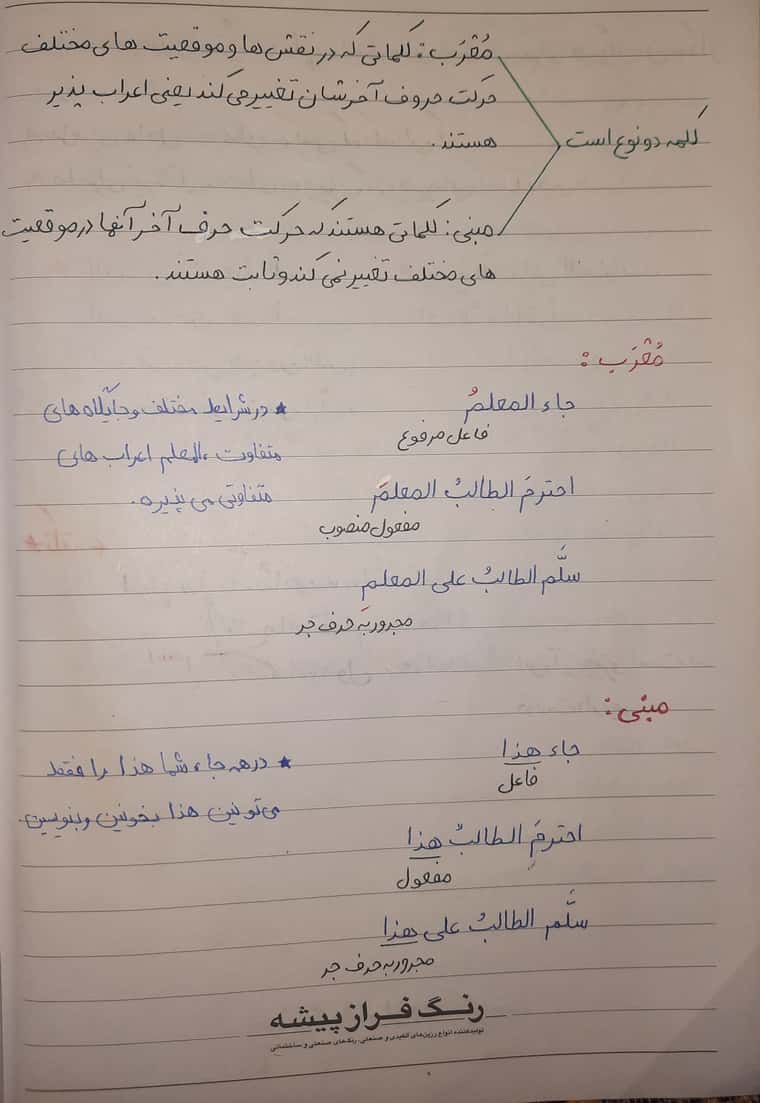 کلمه دو نوع است
مُعْرَب : کلماتی که در نقش ها و موقعیت های مختلف
حرکت حروف آخرشان تغییر می کند یعنی اعراب پذیر
هستند .
مبنی : کلماتی هستند که حرکت حرف آخر آنها در موقعیت
های مختلف تغییر نمی کند و ثابت هستند .
مُعْرَب :
جاء المعلمُ
فاعل مرفوع
احترمَ الطالبُ المعلمَ
مفعول منصوب
سلَّم الطالبُ على المعلم
مجرور به حرف جر
* در شرایط مختلف و جایگاه های
متفاوت ، المعلم اعراب های
متفاوتی می پذیره.
مبنی :
جاء هذا
فاعل
احترمَ الطالبُ هذا
مفعول
سلَّم الطالبُ على هذا
مجرور به حرف جر
* در همه جا ، شما هذا را فقط
می تونین هذا بخونین و بنویسین.
رنگ فراز پیشه
تولیدکننده انواع رزین‌های الکیدی و صنعتی، رنگ‌های صنعتی و ساختمانی